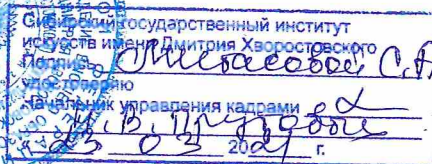 Сибирский государственный институт
искусств имени Дмитрия Хворостовского
Подпись Митасовой С.А
удостоверяю
Начальник управления кадрами
23 03 2021 г.